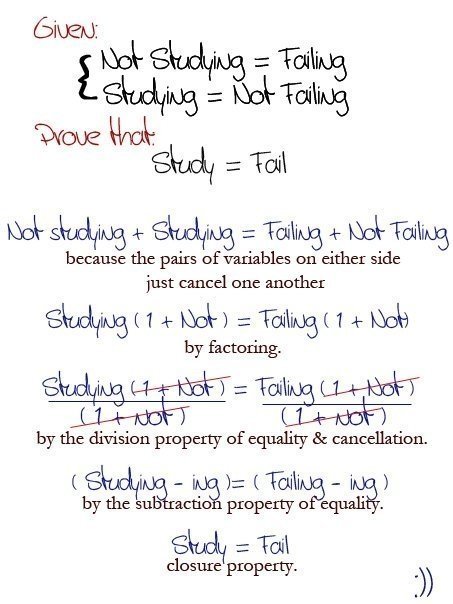 Given:
{ Not Studying = Failing
Studying = Not Failing
Prove that:
Study = Fail
Not studying + Studying = Failing + Not Failing
because the pairs of variables on either side
just cancel one another
Studying ( 1 + Not ) = Failing ( 1 + Not)
by factoring.
Studying ( 1 + Not ) = Failing ( 1 + Not )
( 1 + Not ) ( 1 + Not )
by the division property of equality & cancellation.
( Studying - ing ) = ( Failing - ing )
by the subtraction property of equality.
Study = Fail
closure property.
:))